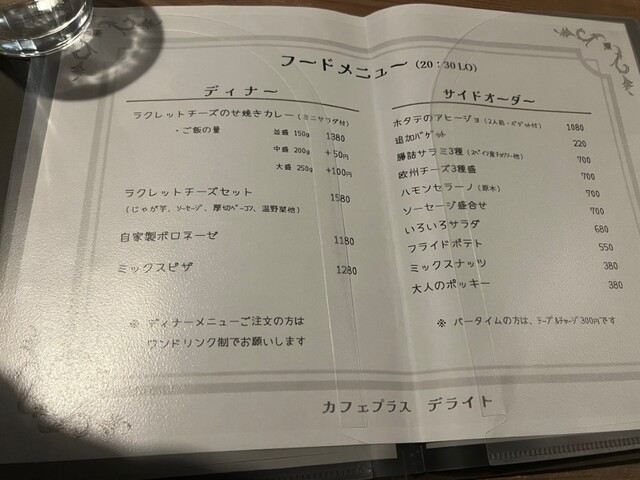 フードメニュー (20：30LO)
ディナー
ラクレットチーズのせ焼きカレー (ミニサラダ付)
・ご飯の量 並盛 150g 1380
中盛 200g +50円
大盛 250g +100円
ラクレットチーズセット 1580
(じゃが芋、ｿｰｾｰｼﾞ、厚切ﾍﾞｰｺﾝ、温野菜他)
自家製ボロネーゼ 1180
ミックスピザ 1280
※ ディナーメニューご注文の方は
ワンドリンク制でお願いします
サイドオーダー
ホタテのアヒージョ (2人前・ﾊﾞｹﾞｯﾄ付) 1080
追加ﾊﾞｹﾞｯﾄ 220
腸詰サラミ3種 (ｽﾍﾟｲﾝ産ﾁｮﾘｿｰ他) 700
欧州チーズ3種盛 700
ハモンセラーノ (原木) 700
ソーセージ盛合せ 700
いろいろサラダ 680
フライドポテト 550
ミックスナッツ 380
大人のポッキー 380
※ バータイムの方は、ﾃｰﾌﾞﾙﾁｬｰｼﾞ300円です
カフェプラス デライト